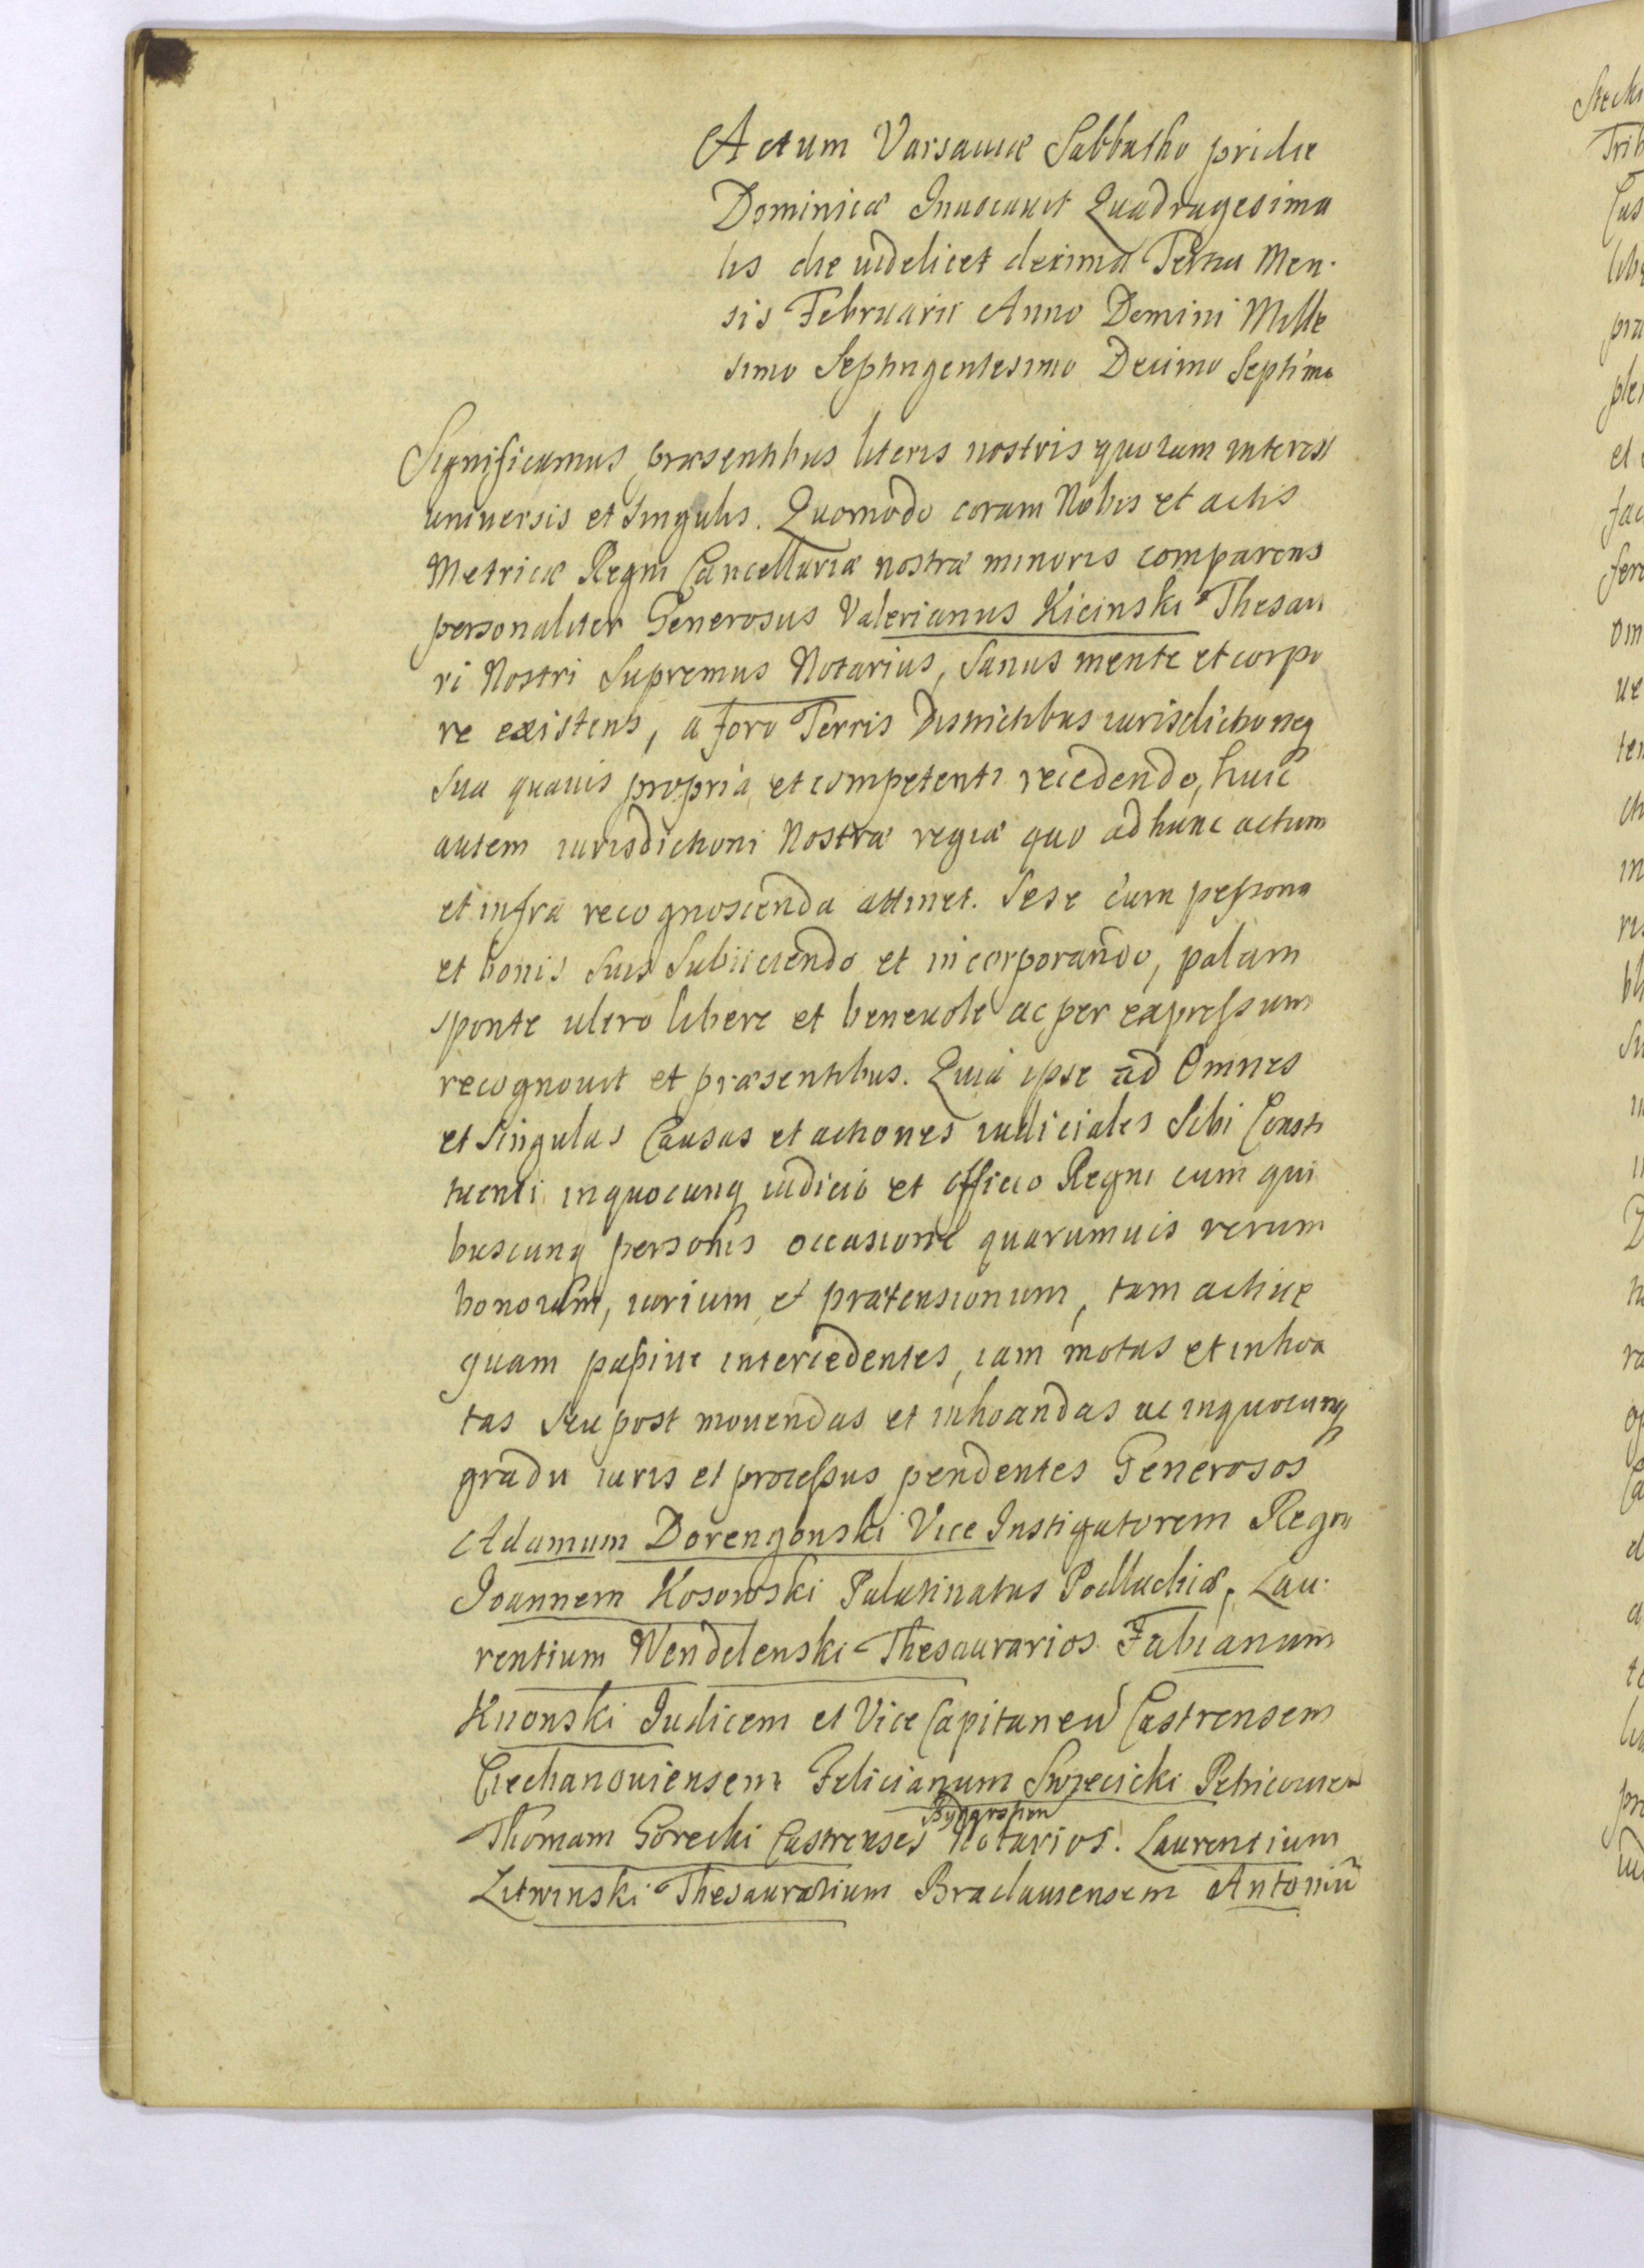 Actum Varsaviæ Sabbatho pridie
Dominicæ Invocavit Quadragesima
lis die videlicet decima Tertia Men-
sis Februarii Anno Domini Mille
simo Septingentesimo Decimo Septimo
Significamus præsentibus literis nostris quorum interest
universis et singulis. Quomodo coram Nobis et actis
Metricæ Regni Cancellariæ nostræ minoris comparens
personaliter Generosus Valerianus Kicinski Thesau
ri Nostri Supremus Notarius, Sanus mente et corpo
re existens, a foro Terris Districtibus iurisdictioneq
sua quavis propria et competenti recedendo, huic
autem iurisdictioni Nostræ regiæ quo ad hunc actum
et infra recognoscenda attinet. Sese cum persona
et bonis suis Subiiciendo et incorporando, palam
sponte ultro libere et benevole ac per expressum
recognovit et præsentibus. Quia ipse ad Omnes
et singulas Causas et actiones iudiciales Sibi Consti
tuenti in quocunq iudicio et officio Regni cum qui
buscunq personis occasione quarumvis rerum
bonorum, iurium et prætensionum, tam active
quam passive intercedentes, iam motas et inhoa
tas seu post movendas et inhoandas ac in quocunq
gradu iuris et processus pendentes Generosos
Adamum Dorengowski Vice Instigatorem Regni
Joannem Kosowski Palatinatus Podlachiæ, Lau-
rentium Wendelenski Thesaurarios Fabianum
Kuonski Judicem et Vice Capitaneũ Castrensem
Ciechanoviensem Felicianum Swiecicki
Thomam Gorecki Castrenses Notarios. Laurentium
Litwinski Thesaurarium Braclaviensem Antoniũ